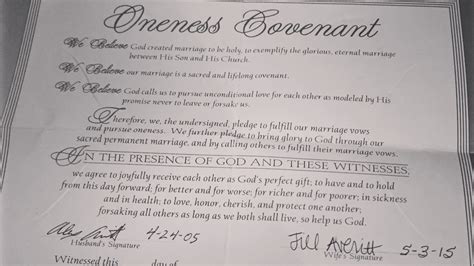 Oneness Covenant
We Believe God created marriage to be holy, to exemplify the glorious, eternal marriage
between His Son and His Church.
We Believe our marriage is a sacred and lifelong covenant.
We Believe God calls us to pursue unconditional love for each other as modeled by His
promise never to leave or forsake us.
Therefore, we, the undersigned, pledge to fulfill our marriage vows
and pursue oneness. We further pledge to bring glory to God through our
sacred permanent marriage, and by calling others to fulfill their marriage vows.
IN THE PRESENCE OF GOD AND THESE WITNESSES,
we agree to joyfully receive each other as God's perfect gift; to have and to hold
from this day forward; for better and for worse; for richer and for poorer; in sickness
and in health; to love, honor, cherish, and protect one another;
forsaking all others as long as we both shall live, so help us God.
4-24-05 Jill Averitt 5-3-15
Husband's Signature Wife's Signature
Witnessed this day of